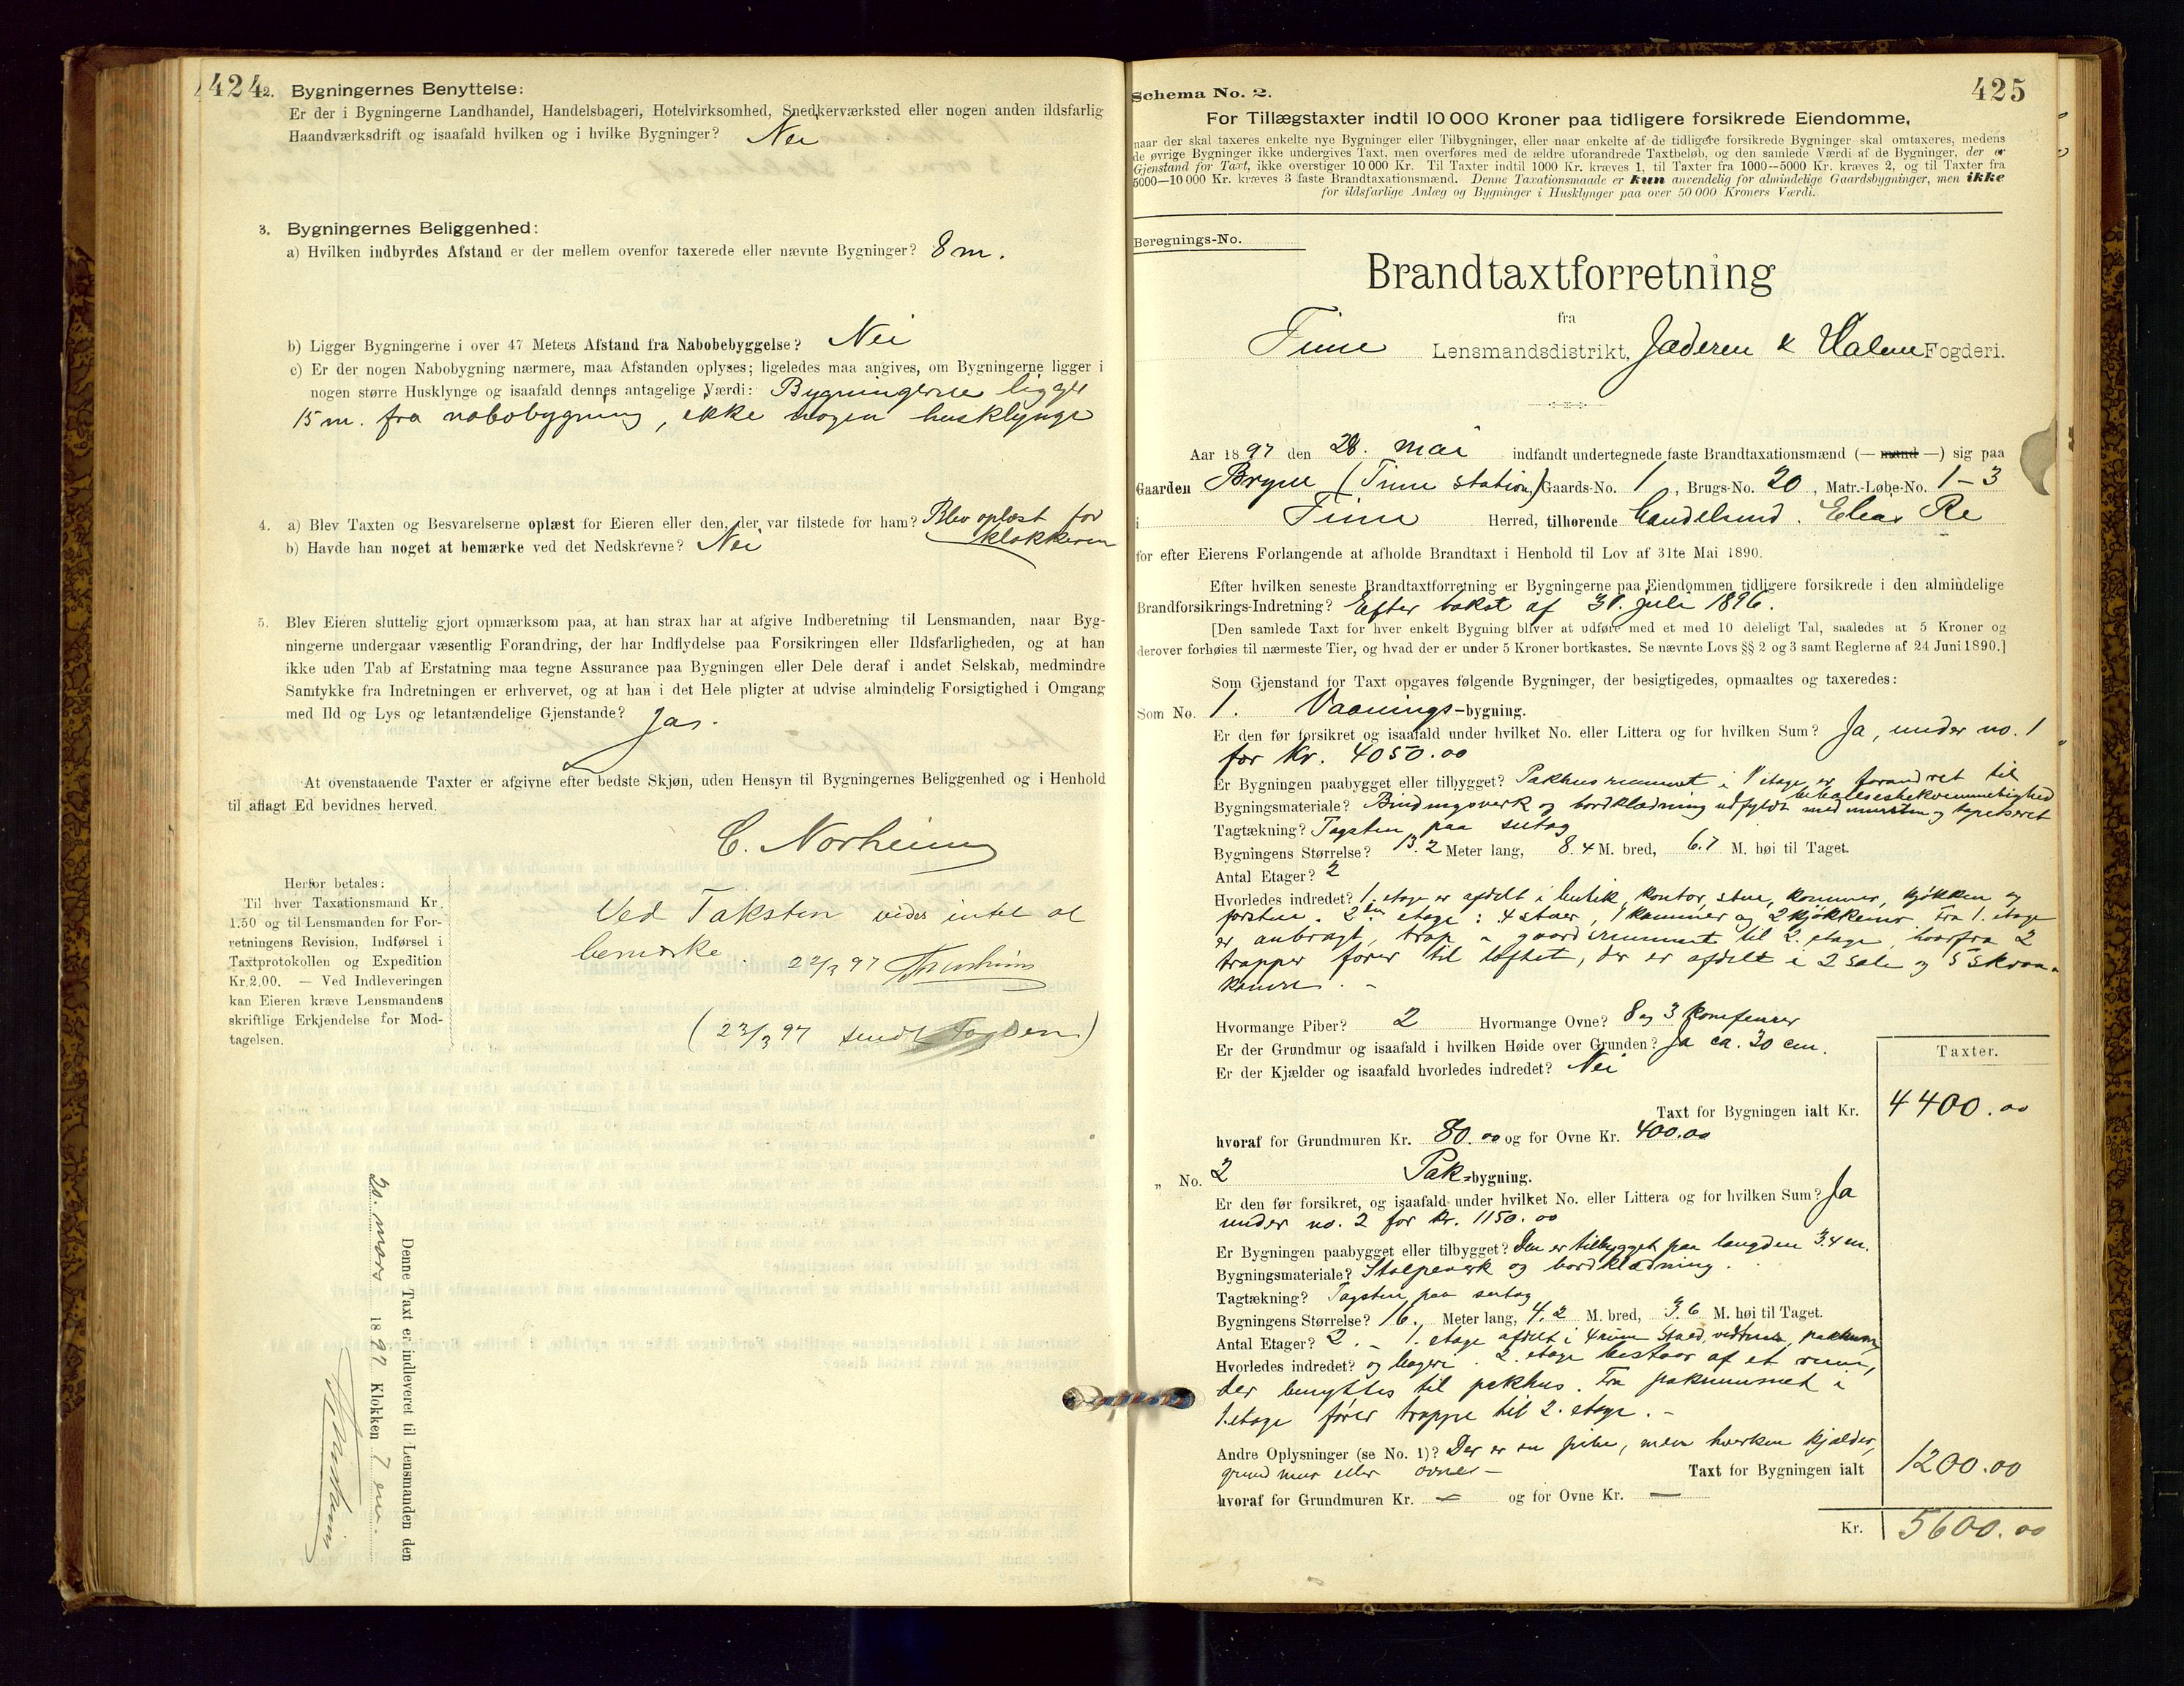 424
2. Bygningernes Benyttelse:
Er der i Bygningerne Landhandel, Handelsbageri, Hotelvirksomhed, Snedkerværksted eller nogen anden ildsfarlig
Haandværksdrift og isaafald hvilken og i hvilke Bygninger? Nei
3. Bygningernes Beliggenhed:
a) Hvilken indbyrdes Afstand er der mellem ovenfor taxerede eller nævnte Bygninger? 8 m.
b) Ligger Bygningerne i over 47 Meters Afstand fra Nabobebyggelse? Nei
c) Er der nogen Nabobygning nærmere, maa Afstanden oplyses; ligeledes maa angives, om Bygningerne ligger i
nogen større Husklynge og isaafald dennes antagelige Værdi: Bygningerne ligger
15 m. fra nabobygning, ikke nogen husklynge
4. a) Blev Taxten og Besvarelserne oplæst for Eieren eller den, der var tilstede for ham? Blev oplæst for
klokkeren
b) Havde han noget at bemærke ved det Nedskrevne? Nei
5. Blev Eieren sluttelig gjort opmærksom paa, at han strax har at afgive Indberetning til Lensmanden, naar Byg-
ningerne undergaar væsentlig Forandring, der har Indflydelse paa Forsikringen eller Ildsfarligheden, og at han
ikke uden Tab af Erstatning maa tegne Assurance paa Bygningen eller Dele deraf i andet Selskab, medmindre
Samtykke fra Indretningen er erhvervet, og at han i det Hele pligter at udvise almindelig Forsigtighed i Omgang
med Ild og Lys og letantændelige Gjenstande? Ja.
At ovenstaaende Taxter er afgivne efter bedste Skjøn, uden Hensyn til Bygningernes Beliggenhed og i Henhold
til aflagt Ed bevidnes herved.
C. Norheim
Herfor betales:
Til hver Taxationsmand Kr.
1.50 og til Lensmanden for For-
retningens Revision, Indførsel i
Taxtprotokollen og Expedition
Kr. 2,00. — Ved Indleveringen
kan Eieren kræve Lensmandens
skriftlige Erkjendelse for Mod-
tagelsen.
Ved Taksten vides intet at
bemærke. 22/3 97
(23/3 97 sendt Fogden)
Denne Taxt er indleveret til Lensmanden den
20. mars 1897 Klokken 7 em.
425
Schema No. 2.
For Tillægstaxter indtil 10 000 Kroner paa tidligere forsikrede Eiendomme,
naar der skal taxeres enkelte nye Bygninger eller Tilbygninger, eller naar enkelte af de tidligere forsikrede Bygninger skal omtaxeres, medens
de øvrige Bygninger ikke undergives Taxt, men overføres med de ældre uforandrede Taxtbeløb, og den samlede Værdi af de Bygninger, der er
Gjenstand for Taxt, ikke overstiger 10 000 Kr. Til Taxter indtil 1000 Kr. kræves 1, til Taxter fra 1000—5000 Kr. kræves 2, og til Taxter fra
5000—10 000 Kr. kræves 3 faste Brandtaxationsmænd. Denne Taxationsmaade er kun anvendelig for almindelige Gaardsbygninger, men ikke
for ildsfarlige Anlæg og Bygninger i Husklynger paa over 50 000 Kroners Værdi.
Beregnings-No.
Brandtaxtforretning
fra
Time Lensmandsdistrikt, Jæderen & Dalene Fogderi.
Aar 1897 den 28. mai indfandt undertegnede faste Brandtaxationsmænd (— mand —) sig paa
Gaarden Bryne (Time station,) Gaards-No. 1, Brugs-No. 20, Matr.-Løbe-No. 1-3
i Time Herred, tilhørende handelsmd. Elias Re
for efter Eierens Forlangende at afholde Brandtaxt i Henhold til Lov af 31te Mai 1890.
Efter hvilken seneste Brandtaxtforretning er Bygningerne paa Eiendommen tidligere forsikrede i den almindelige
Brandforsikrings-Indretning? Efter takst af 31. juli 1896.
[Den samlede Taxt for hver enkelt Bygning bliver at udføre med et med 10 deleligt Tal, saaledes at 5 Kroner og
derover forhøies til nærmeste Tier, og hvad der er under 5 Kroner bortkastes. Se nævnte Lovs §§ 2 og 3 samt Reglerne af 24 Juni 1890.]
Som Gjenstand for Taxt opgaves følgende Bygninger, der besigtigedes, opmaaltes og taxeredes:
Som No. 1. Vaanings-bygning.
Er den før forsikret og isaafald under hvilket No. eller Littera og for hvilken Sum? Ja, under no. 1
for kr. 4050.00
Er Bygningen paabygget eller tilbygget? Pakhusrummet i 1 etage er forandret til
bebaaelsesbekvemmelighed
Bygningsmateriale? Bindingsverk og bordklædning udfyldt med mursten og tapetseret
Tagtækning? Tagsten paa sutag
Bygningens Størrelse? 13.2 Meter lang, 8.4 M. bred, 6.7 M. høi til Taget.
Antal Etager? 2
Hvorledes indredet? 1. etage er afdelt i butik, kontor, stue, kammer, kjøkken og
forstue. 2den etage: 4 stuer, 1 kammer og 2 kjøkkener. Fra 1. etage
er anbragt trap i gaardsrummet til 2. etage, hvorfra 2
trapper fører til loftet, der er afdelt i 2 sale og 5 skraa-
kamre. -
Hvormange Piber? 2 Hvormange Ovne? 8 og 3 komfurer
Er der Grundmur og isaafald i hvilken Høide over Grunden? Ja ca. 30 cm.
Er der Kjælder og isaafald hvorledes indredet? Nei
Taxter.
Taxt for Bygningen ialt Kr. 4400.00
hvoraf for Grundmuren Kr. 80.00 og for Ovne Kr. 400.00
„ No. 2 Pak-bygning.
Er den før forsikret, og isaafald under hvilket No. eller Littera og for hvilken Sum? Ja
under no. 2 for kr. 1150.00
Er Bygningen paabygget eller tilbygget? Den er tilbygget paa længden 3.4 m.
Bygningsmateriale? Stolpeverk og bordklædning.
Tagtækning? Tagsten paa sutag
Bygningens Størrelse? 16. Meter lang, 4.2 M. bred, 3.6 M. høi til Taget.
Antal Etager? 2. - 1. etage afdelt i 4 rum stald, vedskur, pakkerum
Hvorledes indredet? og bageri. 2. etage bestaar af et rum,
der benyttes til pakhus. Fra pakrummet i
1. etage fører trappe til 2. etage. -
Andre Oplysninger (se No. 1)? Der er en pibe, men hverken kjælder,
grundmur eller ovner -
Taxt for Bygningen ialt 1200.00
hvoraf for Grundmuren Kr. — og for Ovne Kr. —
Kr. 5600.00